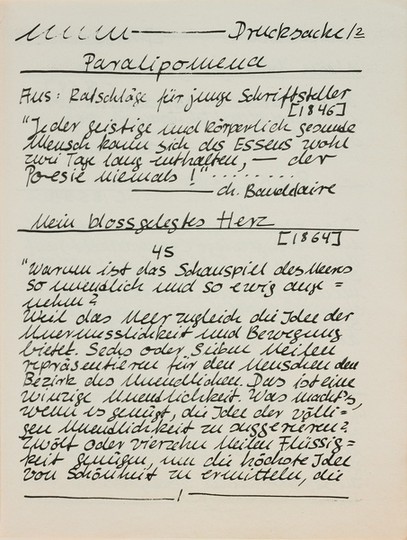 Drucksache 1/2
Paralipomena
Aus: Ratschläge für junge Schriftsteller
[1846]
"Jeder geistige und körperlich gesunde
Mensch kann sich des Essens wohl
zwei Tage lang enthalten, — der
Poesie niemals!" . . . . . . . .
ch. Baudelaire
Mein blossgelegtes Herz
[1864]
45
"Warum ist das Schauspiel des Meeres
so unendlich und so ewig ange=
nehm?
Weil das Meer zugleich die Idee der
Unermesslichkeit und Bewegung
bietet. Sechs oder Sieben Meilen
repräsentieren für den Menschen den
Bezirk des Unendlichen. Das ist eine
winzige Unendlichkeit. Was macht's,
wenn es genügt, die Idee der völli=
gen Unendlichkeit zu suggerieren?
Zwölf oder vierzehn Meilen Flüssig=
keit genügen, um die höchste Idee
von Schönheit zu ermitteln, die
1